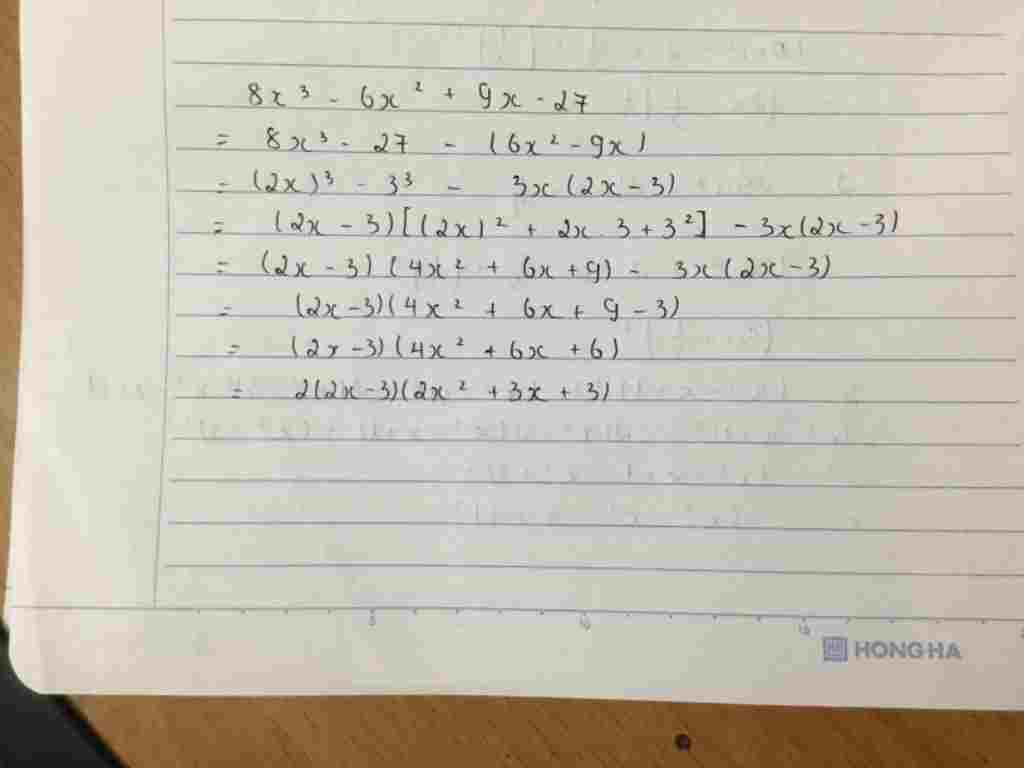 8x³ - 6x² + 9x - 27
= 8x³ - 27 - (6x² - 9x)
= (2x)³ - 3³ - 3x(2x - 3)
= (2x - 3)[(2x)² + 2x.3 + 3²] - 3x(2x - 3)
= (2x - 3)(4x² + 6x + 9) - 3x(2x - 3)
= (2x - 3)(4x² + 6x + 9 - 3)
= (2x - 3)(4x² + 6x + 6)
= 2(2x - 3)(2x² + 3x + 3)
HONG HA